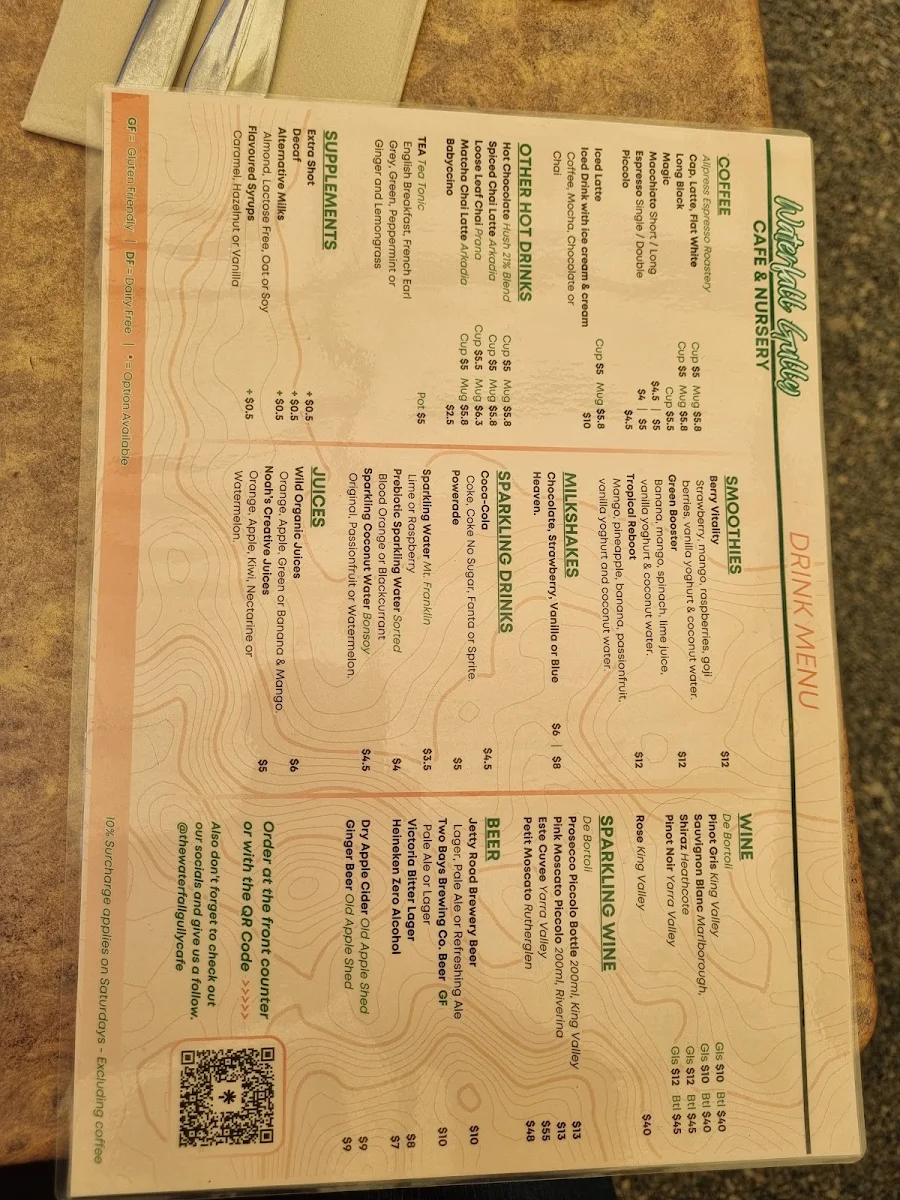 Waterfall Gully
CAFE & NURSERY
DRINK MENU
COFFEE
Allpress Espresso Roastery
Cap, Latte, Flat White Cup $5 Mug $5.8
Long Black Cup $5 Mug $5.8
Magic Cup $5.5
Macchiato Short / Long $4.5 | $5
Espresso Single / Double $4 | $5
Piccolo $4.5
Iced Latte Cup $5 Mug $5.8
Iced Drink with ice cream & cream $10
Coffee, Mocha, Chocolate or
Chai
OTHER HOT DRINKS
Hot Chocolate Hush 21% Blend Cup $5 Mug $5.8
Spiced Chai Latte Arkadia Cup $5 Mug $5.8
Loose Leaf Chai Prana Cup $5.5 Mug $6.3
Matcha Chai Latte Arkadia Cup $5 Mug $5.8
Babyccino $2.5
TEA Tea Tonic Pot $5
English Breakfast, French Earl
Grey, Green, Peppermint or
Ginger and Lemongrass
SUPPLEMENTS
Extra Shot + $0.5
Decaf + $0.5
Alternative Milks + $0.5
Almond, Lactose Free, Oat or Soy
Flavoured Syrups + $0.5
Caramel, Hazelnut or Vanilla
SMOOTHIES
Berry Vitality $12
Strawberry, mango, raspberries, goji
berries, vanilla yoghurt & coconut water.
Green Booster $12
Banana, mango, spinach, lime juice,
vanilla yoghurt & coconut water.
Tropical Reboot $12
Mango, pineapple, banana, passionfruit,
vanilla yoghurt and coconut water.
MILKSHAKES
Chocolate, Strawberry, Vanilla or Blue $6 | $8
Heaven.
SPARKLING DRINKS
Coca-Cola $4.5
Coke, Coke No Sugar, Fanta or Sprite.
Powerade $5
Sparkling Water Mt. Franklin $3.5
Lime or Raspberry
Prebiotic Sparkling Water Sorted $4
Blood Orange or Blackcurrant
Sparkling Coconut Water Bonsoy $4.5
Original, Passionfruit or Watermelon.
JUICES
Wild Organic Juices $6
Orange, Apple, Green or Banana & Mango.
Noah's Creative Juices $5
Orange, Apple, Kiwi, Nectarine or
Watermelon.
WINE
De Bortoli
Pinot Gris King Valley Gls $10 Btl $40
Sauvignon Blanc Marlborough, Gls $10 Btl $40
Shiraz Heathcote Gls $12 Btl $45
Pinot Noir Yarra Valley Gls $12 Btl $45
Rose King Valley $40
SPARKLING WINE
De Bortoli
Prosecco Piccolo Bottle 200ml, King Valley $13
Pink Moscato Piccolo 200ml, Riverina $13
Este Cuvee Yarra Valley $55
Petit Moscato Rutherglen $48
BEER
Jetty Road Brewery Beer $10
Lager, Pale Ale or Refreshing Ale
Two Bays Brewing Co. Beer GF $10
Pale Ale or Lager
Victoria Bitter Lager $8
Heineken Zero Alcohol $7
Dry Apple Cider Old Apple Shed $9
Ginger Beer Old Apple Shed $9
Order at the front counter
or with the QR Code >>>>>
Also don't forget to check out
our socials and give us a follow.
@thewaterfallgullycafe
GF = Gluten Friendly | DF = Dairy Free | * = Option Available
10% Surcharge applies on Saturdays - Excluding coffee